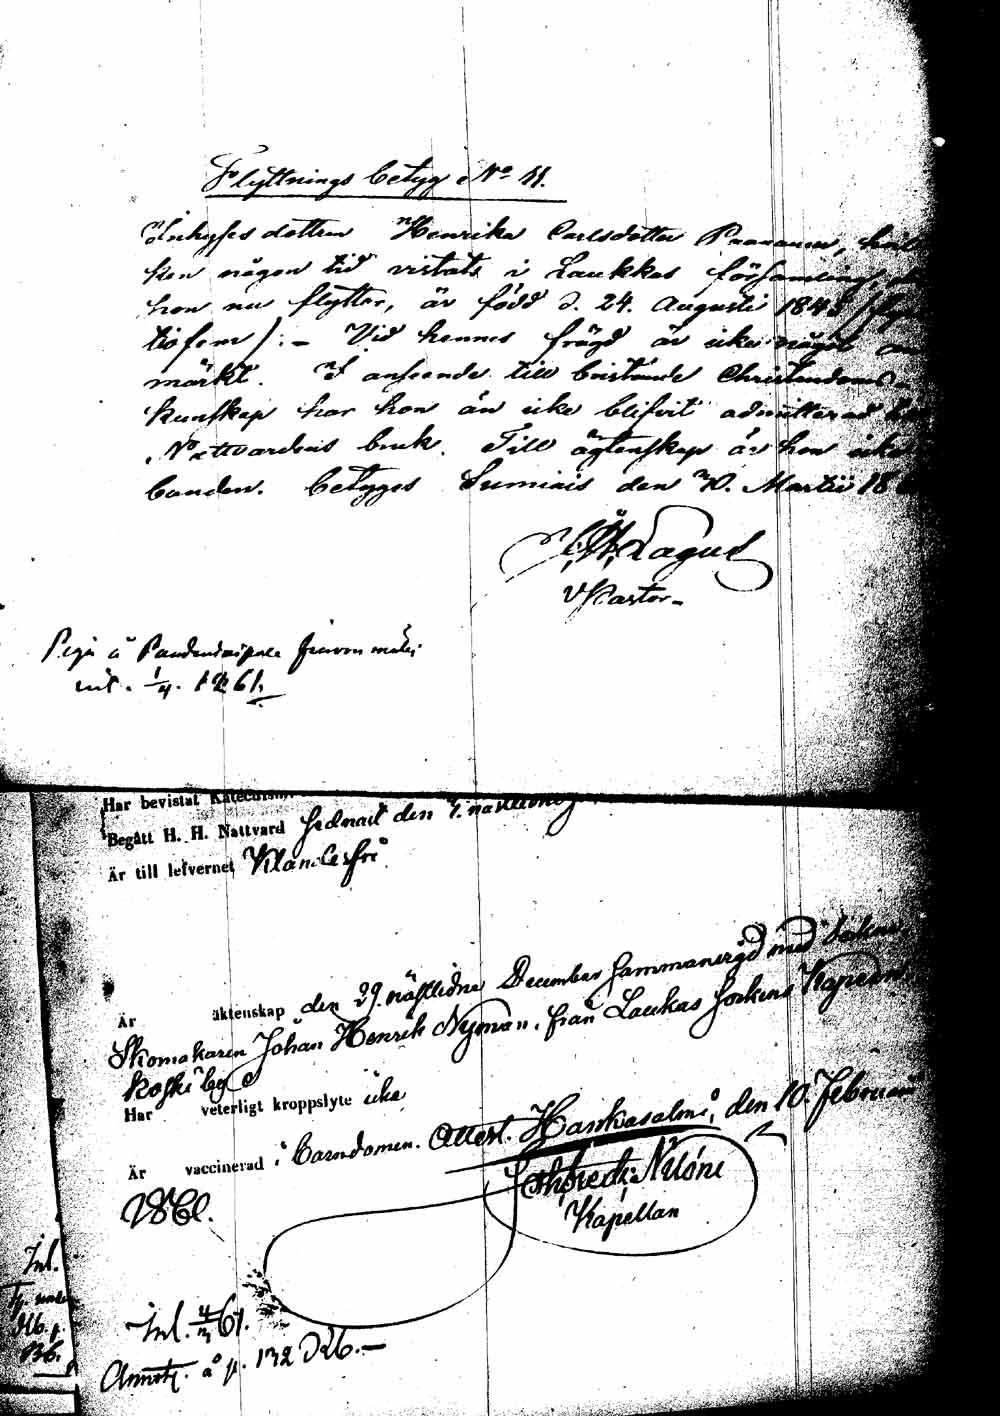 Flyttnings betyg No 11.
Inhyses dottern Henrika Carlsdotter Paananen,
hon någon tid vistats i Laukkas församling,
hon nu flytter, är född d. 24. Augusti 1845 /
tiofem/. – Vid hennes frägd är icke något
märkt. I anseende till bristande Christendoms-
kunskap har hon än icke blifvit admitterad
Nattvardens bruk. Till ägtenskap är hon icke
bunden. Betyges Sumiais den 20. Martii 18
Lagus
V Pastor.
Piga å
inl. 1/4. 1861.
Har bevistat
Begått H. H. Nattvard sednast den 7.
Är till lefvernet Klanderfri
Är äktenskap den 29 nästledne December sammanvigd med
Skomakaren Johan Henrik Nyman, från Laukas Sockens
koski by
Har veterligt kroppslyte icke
Är vaccinerad i barndomen. Attest. Hankasalmi, den 10. Februari
1861.
Kapellan
Inl.
Inl. 4/3 61.
Annot. å p. 132 Dkb.–